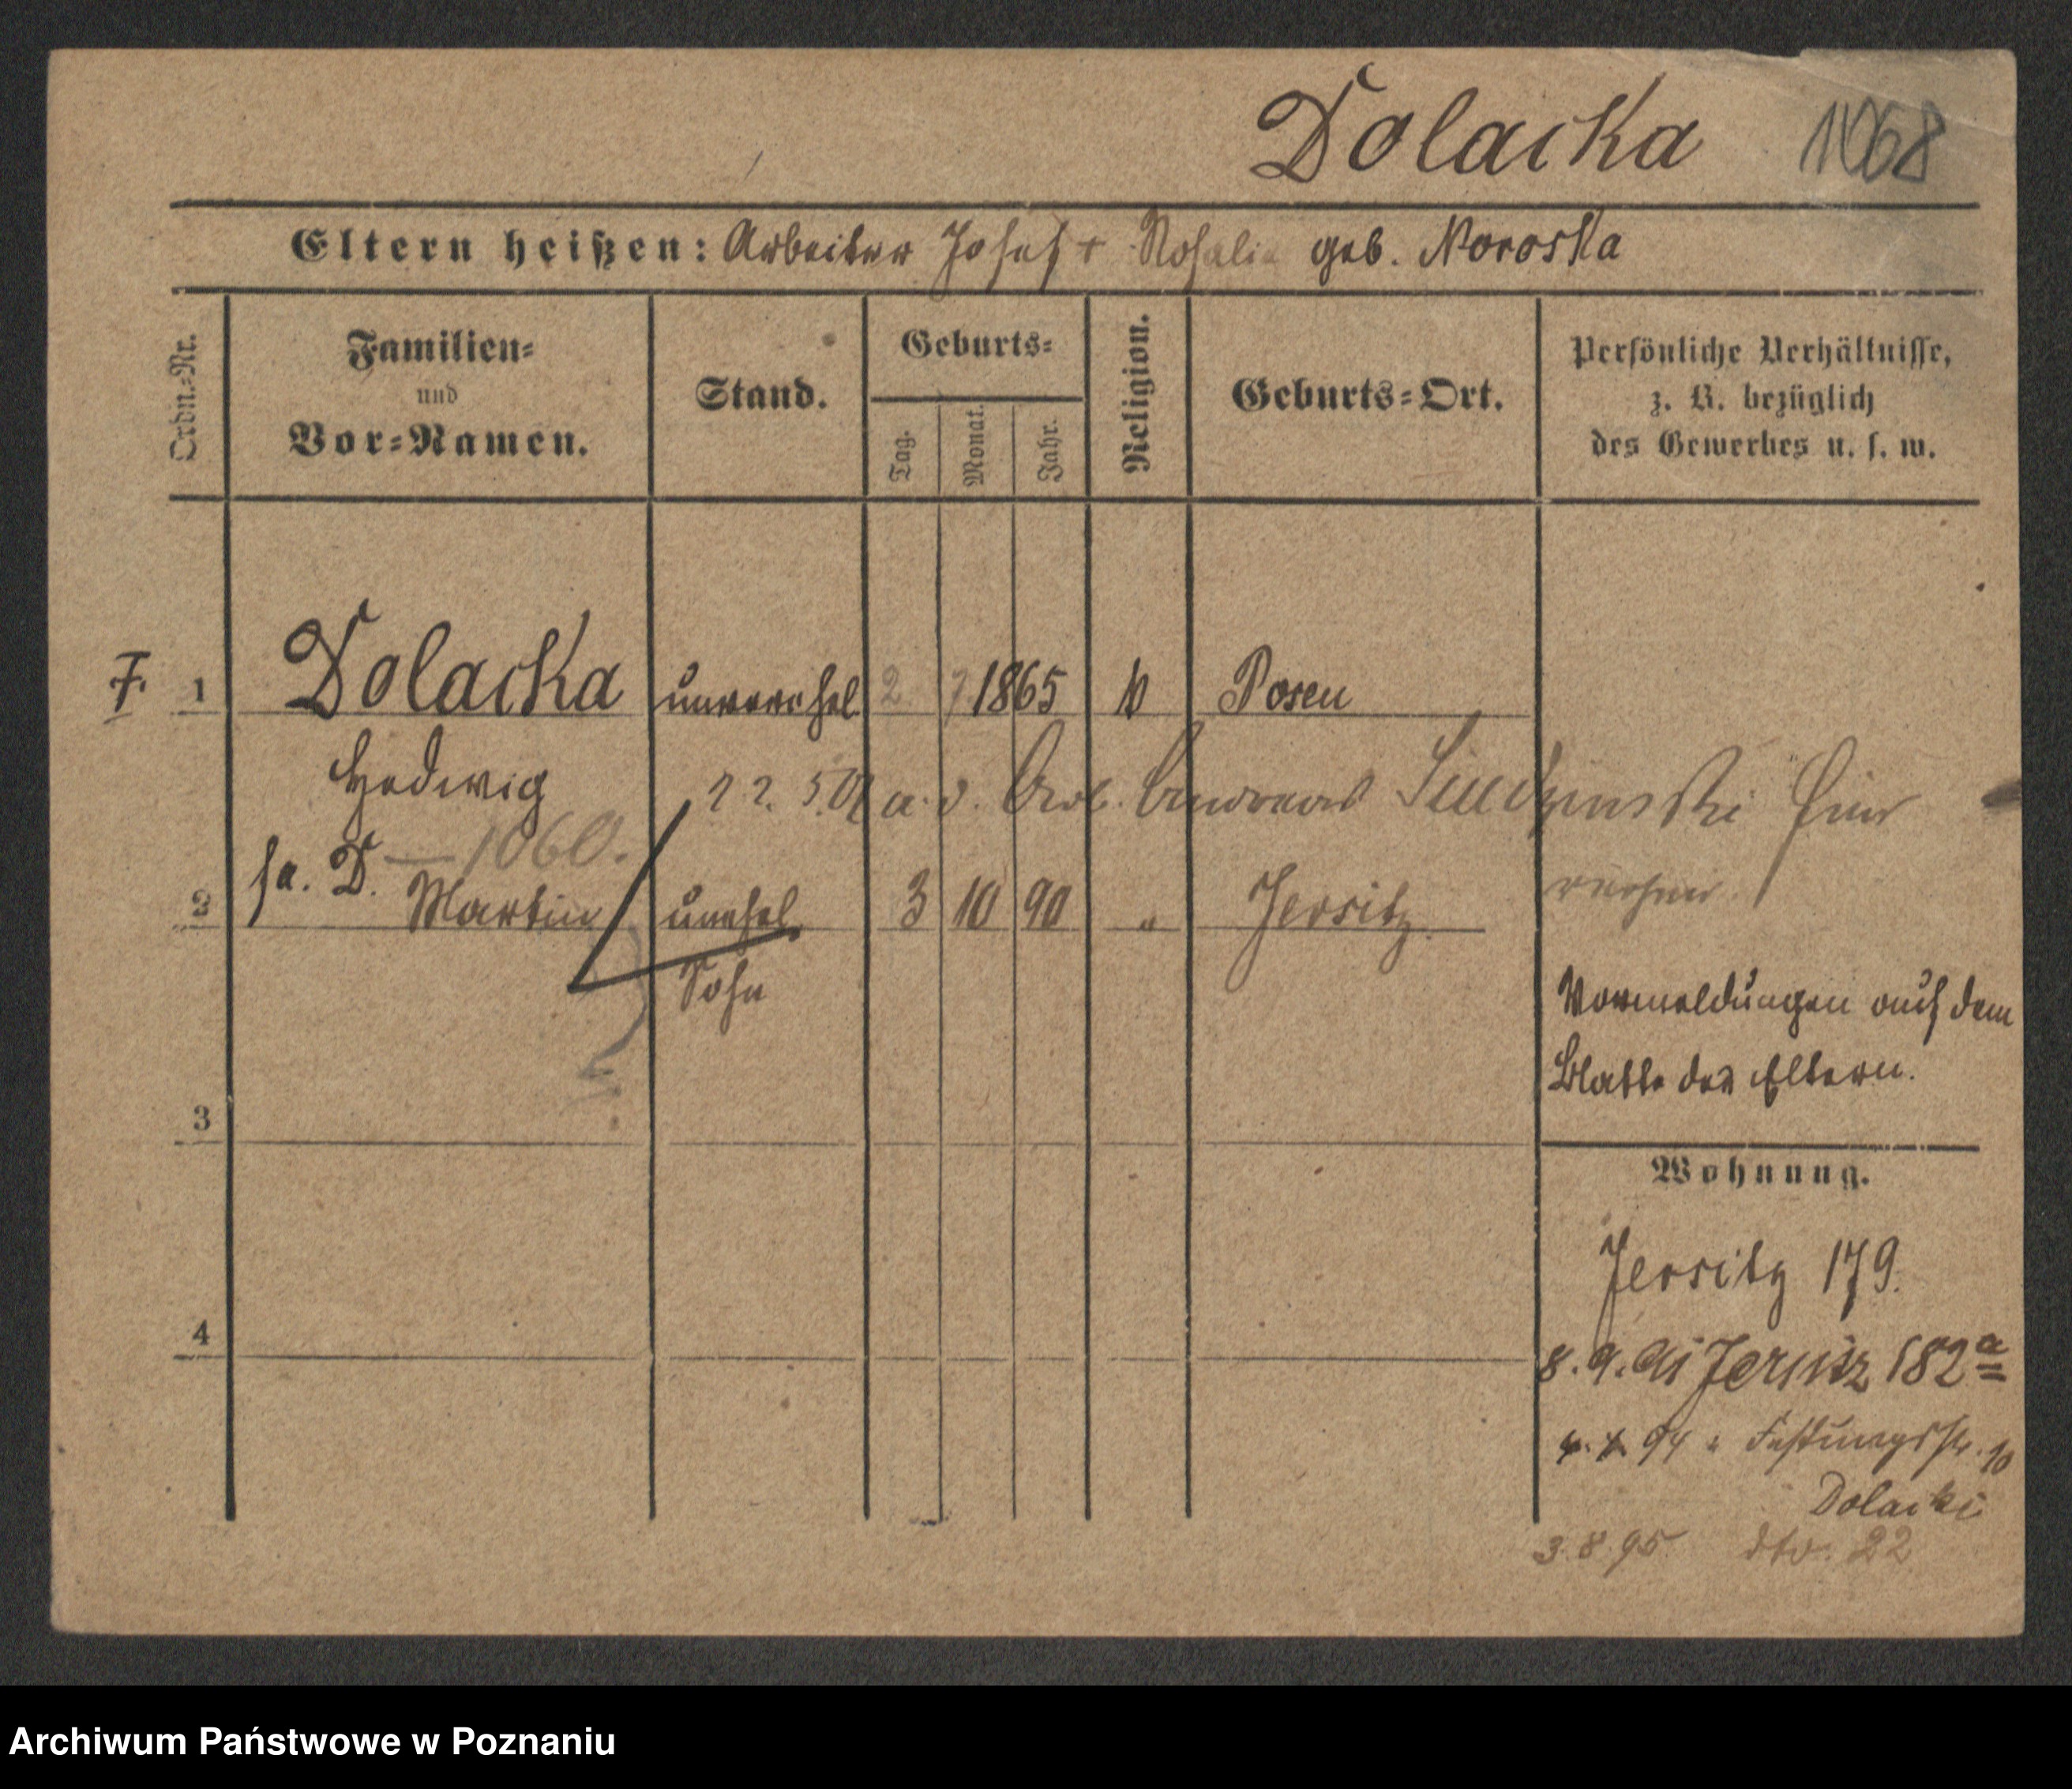 Dolacka 1068
Eltern heißen: Arbeiter Josef + Rosalie geb. Noroska
Ordn.-Nr.
Familien-
und
Vor-Namen.
Stand.
Geburts-
Tag.
Monat.
Jahr.
Religion.
Geburts-Ort.
Persönliche Verhältnisse,
z. B. bezüglich
des Gewerbes u. s. w.
F. 1 Dolacka unverehel. 2 7 1865 Posen
Hedwig
22. 5. a. d. Arb.
fa. D. — 1060.
2 Martin unehel. 3 10 90 " Jersitz
Sohn
Vormeldungen auf dem
Blatte der Eltern.
3
Wohnung.
Jersitz 179.
4
8. 9. 91 Jersitz 182a
94 " Festungsstr. 10
Dolacki
3. 8. 95 dto. 22
Archiwum Państwowe w Poznaniu